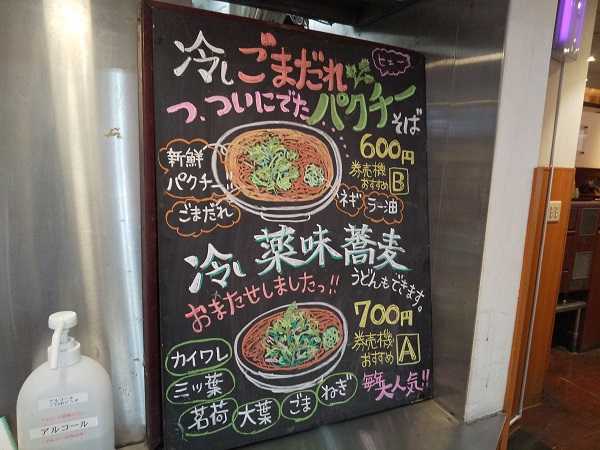 冷しごまだれ
ヒュー
つ、ついにでたパクチーそば
新鮮
パクチー!!
ごまだれ
600円
券売機
おすすめ B
ネギ ラー油
冷し 薬味蕎麦
うどんもできます。
おまたせしましたっ!!
700円
券売機
おすすめ A
カイワレ
三ッ葉
茗荷 大葉 ごま ねぎ
毎年大人気!!
アルコール